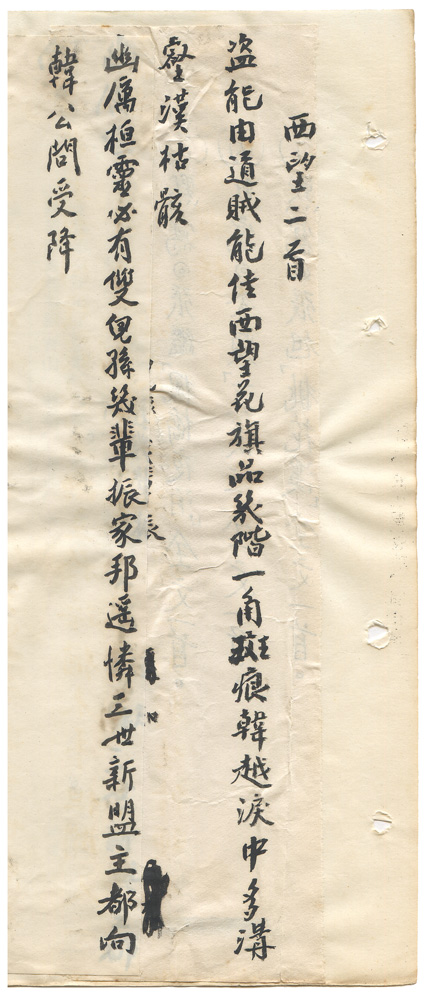 西望二首
盗能由道賊能佳西望花旗品幾階一角斑痕韓越淚中多溝
壑漢枯骸
幽厲桓靈必有雙兒孫幾輩振家邦遥憐三世新盟主都向
韓公問受降